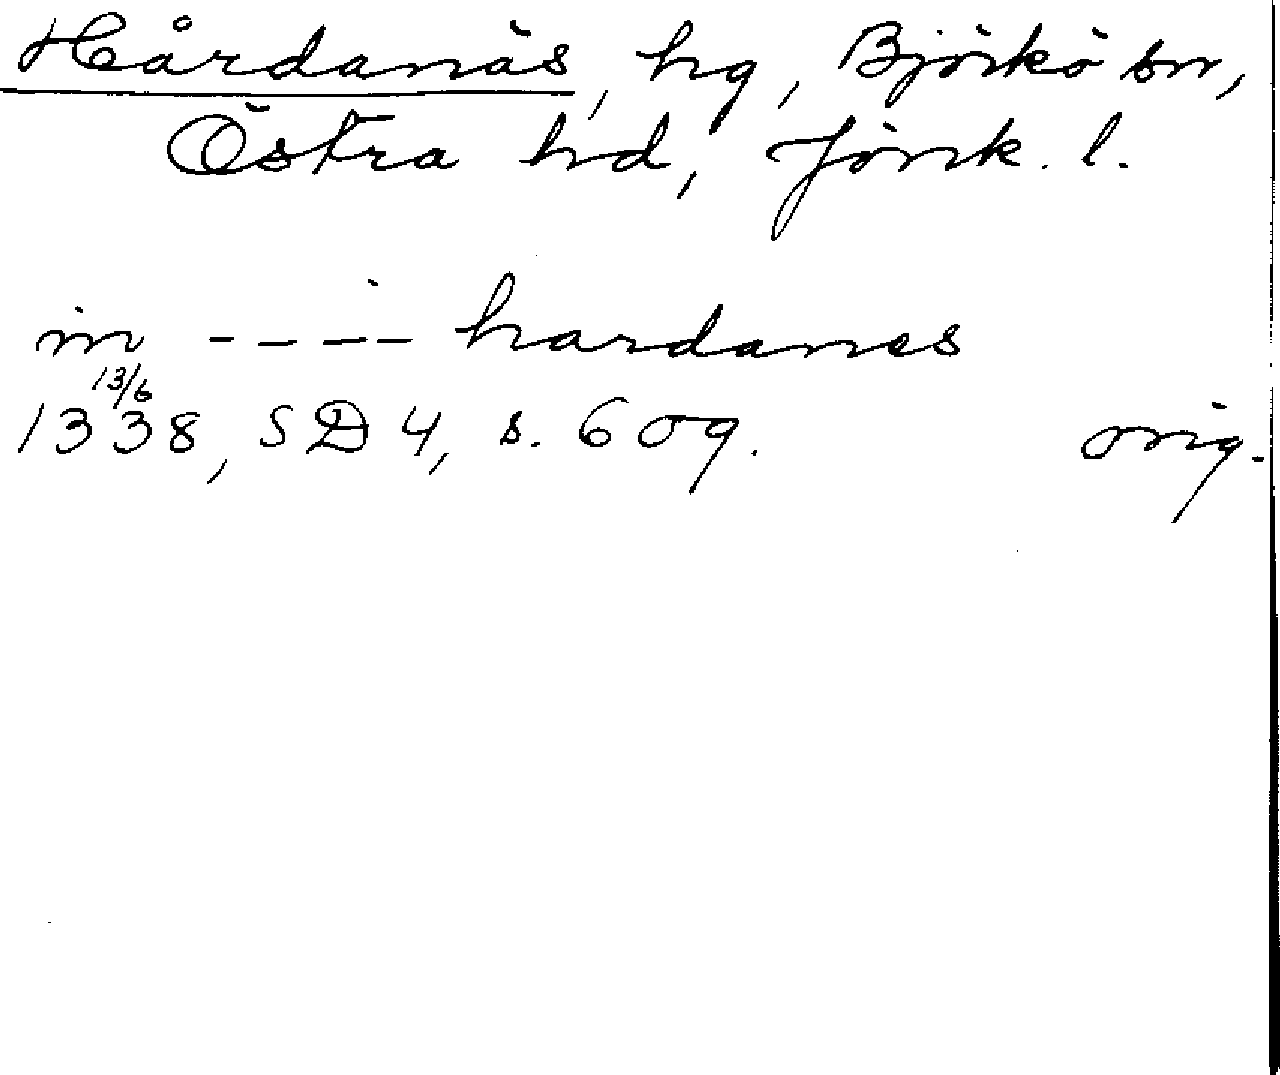 Hårdanäs, hg, Björkö sn,
Östra hd, Jönk. l.
in ---- hardanes
13/6
1338, SD 4, s. 609. orig.